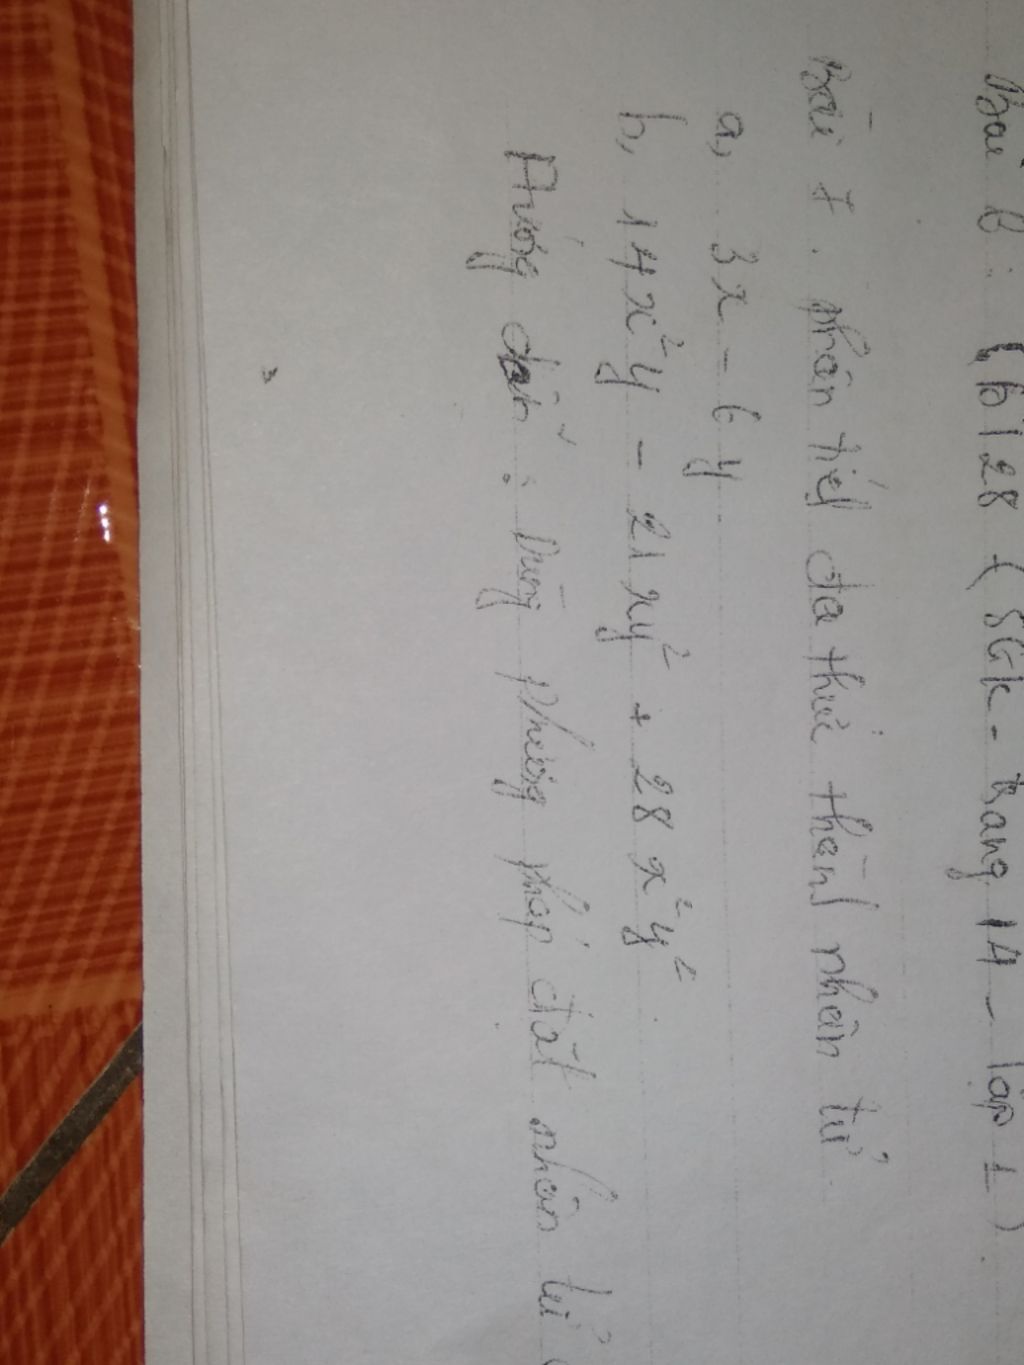 Bài 6 : (bT 28 + (SGK - trang 14 - tập 1).
Bài 7. phân tích đa thức thành nhân tử
a, 3x - 6y
b, 14x²y - 21xy² + 28x²y².
Hướng dẫn : Dùng phương pháp đặt nhân tử